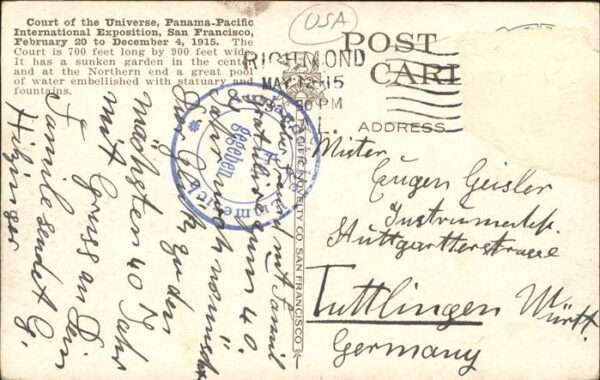 Court of the Universe, Panama-Pacific
International Exposition, San Francisco,
February 20 to December 4, 1915. The
Court is 700 feet long by 900 feet wide.
It has a sunken garden in the center
and at the Northern end a great pool
of water embellished with statuary and
fountains.
USA
POST CARD
RICHMOND
MAY
15
30 PM
ADDRESS
PACIFIC NOVELTY CO. SAN FRANCISCO
Mister
Eugen Geisler
Instrumentef.
Stuttgartterstrasse
Tuttlingen Württ.
Germany
gegeben
mit Famil
zum 40.
Jahr noch
Glück zu den
nächsten 40 Jahr
mit Gruss an Dein
Familie sendet G.
Hilzinger